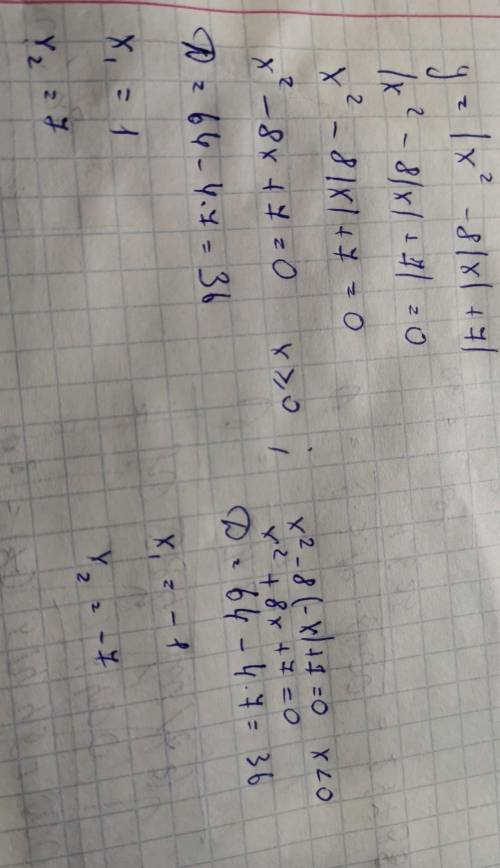 y = |x² - 8|x| + 7|
|x² - 8|x| + 7| = 0
x² - 8|x| + 7 = 0
x² - 8x + 7 = 0 x ⩾ 0 ;
D = 64 - 4·7 = 36
x₁ = 1
x₂ = 7
x² - 8(-x) + 7 = 0 x < 0
x² + 8x + 7 = 0
D = 64 - 4·7 = 36
x₁ = -1
x₂ = -7